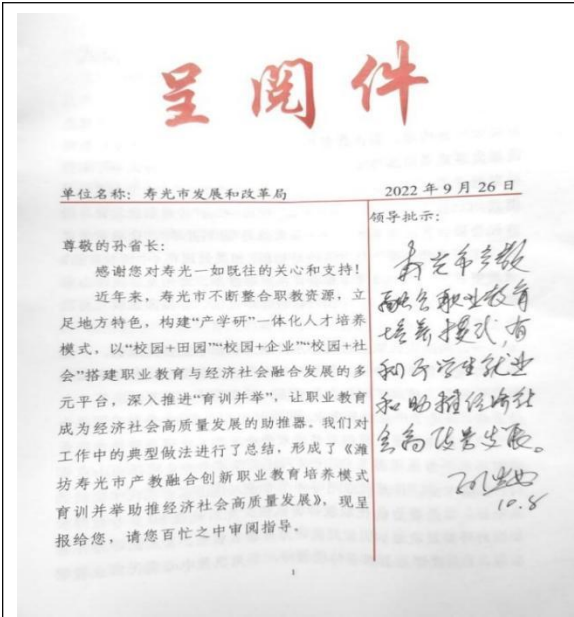 呈阅件
单位名称：寿光市发展和改革局
2022年9月26日
尊敬的孙省长：
感谢您对寿光一如既往的关心和支持！
近年来，寿光市不断整合职教资源，立
足地方特色，构建“产学研”一体化人才培养
模式，以“校园+田园”“校园+企业”“校园+社
会”搭建职业教育与经济社会融合发展的多
元平台，深入推进“育训并举”，让职业教育
成为经济社会高质量发展的助推器。我们对
工作中的典型做法进行了总结，形成了《潍
坊寿光市产教融合创新职业教育培养模式
育训并举助推经济社会高质量发展》，现呈
报给您，请您百忙之中审阅指导。
领导批示：
寿光市产教
融合职业教育
培养模式，有
利于学生就业
和助推经济社
会高质量发展。
10.8
1